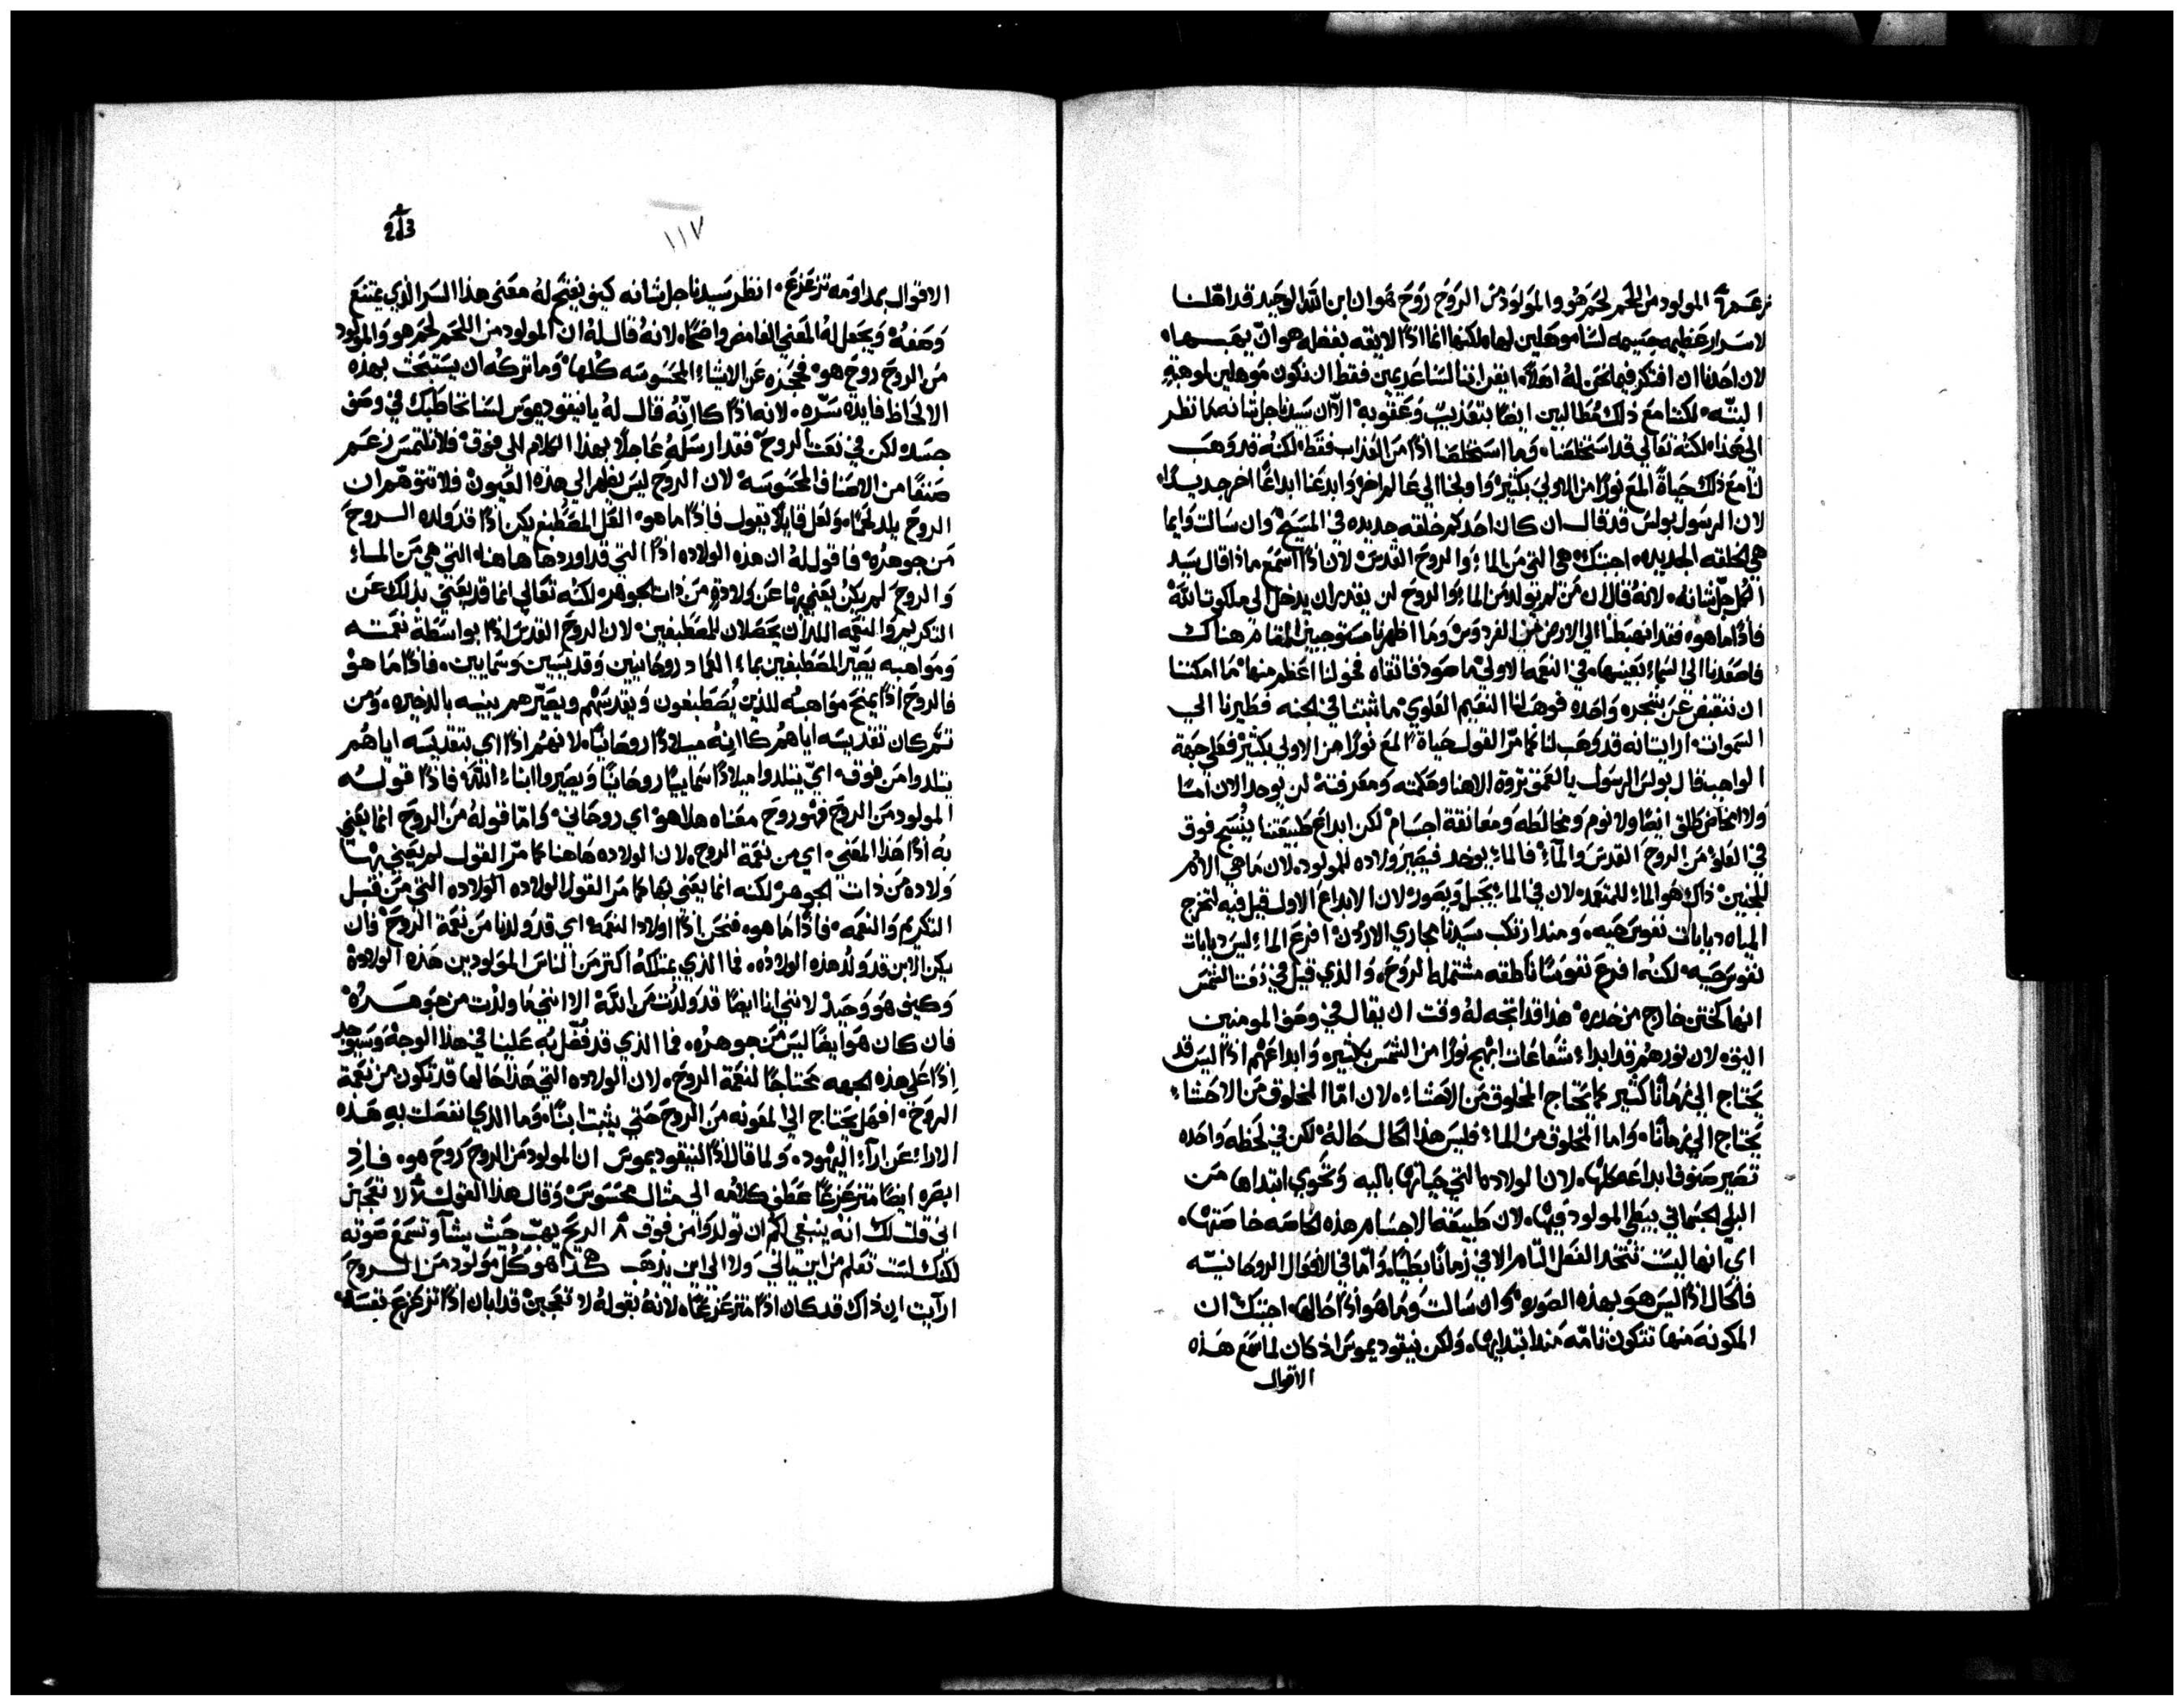 زعم المولود من اللحم لحم هو والمولود من الروح روح هو ان ابن الله الوحيد قد اهلنا
لاسرار عظيمه جسيمه لسنا موهلين لها ملكنها انما اذًا الايقه بفضله هو ان يهبها
لان احدنا ان افتكر فيما نحن له اهلاً، ايقن اننا لسنا عديمين فقط ان نكون موهلين لوهبة
البتّه، لكننا مع ذلك مطالبين ايضًا بتعذيب وعقوبه الّا ان سيدنا جل شانه ما نظر
الى هذا، لكنه تعالي قد استخلصنا، وما استخلصنا اذًا من العذاب فقط، لكنه قد وهب
لنا مع ذلك حياةً المع نورًا من الاولي بكثير، واولجنا الي عالم اخر، وابدعنا ابداعًا اخر جديدًا،
لان الرسول بولس قد قال ان كان احدكم خلقه جديده في المسيح، وان سالت وايما
هي الخلقه الجديده، اجبتك هي التي من الماء والروح القدس لان اذًا اسمع ماذا قال سيد
الكل جل شانه، لانه قال ان من لم يولد من الماء والروح لن يقدر ان يدخل الي ملكوت الله
فاذًا ما هو، فقد انهبطنا الي الارض من الفردوس وما اظهرنا مستوجبين المقام هناك
فاصعدنا الي السماء بعينها، في النعمه الاولي ما صودفنا ثقاه فخولنا اعظم منها، ما امكننا
ان ننقبض عن شجره واحده فوهب لنا النعيم العلوي، ما ثبتنا في الجنه فطيرنا الي
السموات، ارايت انه قد وهب لنا كما مرّ القول حياة المع نورًا من الاولي بكثير، فعلي جهة
الواجب قال بولس الرسول يا لعمق ثروة الاهنا وحكمته ومعرفته، لن يوجد الان امنا
ولا مخاض طلق ايضًا ولا نوم ومخالطه ومعانقة اجسام، لكن ابداع طبيعتنا ينسج فوق
في العلو من الروح القدس والماء، فالماء يوخد فيصير ولاده للمولود، لان ما هي الام
للجنين، ذاك هو الماء للمتعمد، لان في الماء يجبل ويصور، لان الابداع الاول قيل فيه لتخرج
المياه دبابات نفوس حيه، ومنذ ارتكب سيدنا مجاري الاردن، افرع الماء ليس دبابات
نفوس حيه، لكنه افرع نفوسًا ناطقه مشتمله الروح، والذي قيل في نعت الشمس
انها كختن خارج من خدره، هذا قد اتجه له وقت ان يقال في وصف المومنين
اليق، لان نورهم قد ابداء شعاعات ابهج نورًا من الشمس بكثير، وابداعهم اذًا ليس قد
يحتاج الي زمانًا كثير كما يحتاج المخلوق من الاحشاء، لان امّا المخلوق من الاحشاء
يحتاج الي زمانًا، واما المخلوق من الماء، فليس هذا الحال حاله، لكن في لحظه واحده
تصير صنوف ابداعه كلها، لان الولاده التي حياتها باليه وتحوي ابتداها من
البلي الجسماني يبطي المولود فيها، لان طبيعة الاجسام هذه الخاصه خاصتها،
اي انها ليست تتخد الفعل التام الا في زمانًا بطيًا، وامّا في الافعال الروحانيّه
فالحال اذًا ليس هو بهذه الصوره، وان سالت ولما هو اذًا حالها، اجبتك ان
المكونة منها تتكون تامّه منذ ابتدايها، ولكن نيقوديموس اذ كان لما سمع هذه
الاقوال
213
١١٧
الاقوال بمداومه تزعزع، انظر سيدنا جل شانه كيف يفتح له معنى هذا السر الذي يمتنع
وصفه، ويجعل له المعني الغامض واضحًا، لانه قال له ان المولود من اللحم لحم هو والمولود
من الروح روح هو، فحجزه عن الاشياء المحسوسه كلها، وما تركه ان يستبحث بهذه
الالحاظ فايده سرّه، لانه اذًا كاانّه قال له يا نيقوديموس لسنا نخاطبك في وصف
جسد، لكن في نعت الروح، فقد ارسله عاجلاً بهذا الكلام الي فوق، فلا تلتمس زعم
صنفًا من الاصناف المحسوسه لان الروح ليس يظهر الي هذه العيون، فلا تتوهم ان
الروح يلد لحمًا، ولعل قايلاً يقول فاذًا ما هو، العل المصطبغ يكن اذًا قد ولده الروح
من جوهره، فاقول له ان هذه الولاده اذًا التي قد اوردها هاهنا التي هي من الماء
والروح لم يكن يعني بها عن ولادةٍ من ذات الجوهر، لكنه تعالي انما قد يعني بذلك عن
التكريم والنعمه اللذان يحصلان للمصطبغين، لان الروح القدس اذًا بواسطة نعمته
ومواهبه يصيّر المصطبغين بماء العماد روحانيين وقديسين وسماييين، فاذًا ما هو،
فالروح اذًا يمنح مواهبه للذين يصطبغون ويقدسهم ويصيّرهم بنيه بالذخيره، ومن
ثم كان تقديسه اياهم كاانه ميلادًا روحانيًا، لانهم اذًا اي بتقديسه اياهم
يتلدوا من فوق، اي يتلدوا ميلادًا سماييًا روحانيًا ويصيروا ابناء الله، فاذًا قوله
المولود من الروح فهو روح معناه هذا هو، اي روحاني، وامّا قوله من الروح انما يعني
به اذًا هذا المعني، اي من نعمة الروح، لان الولاده هاهنا كما مرّ القول لم يعني بها
ولاده من ذات الجوهر، لكنه انما يعني بها كما مر القول الولاده الولاده التي من قبل
التكريم والنعمه، فاذًا ما هو، فنحن اذًا اولاد النعمه، اي قد ولدنا من نعمة الروح، فان
يكن الابن قد ولد هذه الولاده، فما الذي يمتلكه اكثر من الناس المولودين هذه الولادة
وكيف هو وحيد، لانني انا ايضًا قد ولدت من الله، الا انني ما ولدت من جوهره،
فان كان هو ايضًا ليس من جوهره، فما الذي قد فُضّل به علينا في هذا الوجه، وسيوجد
اذًا على هذه الجهه محتاجًا لنعمة الروح، لان الولاده التي هذا حالها قد تكون من نعمة
الروح، افهل يحتاج الي المعونه من الروح حتي يثبت ابنًا، وما الذي انفصلت به هذه
الاراء عن اراء اليهود، ولما قال اذًا لنيقوديموس ان المولود من الروح روح هو، فاذ
ابصره ايضًا متزعزعًا عطف كلامه الي مثال محسوس، وقال هذا القول لا تعجبن
اني قلت لك انه ينبغي لكم ان تولدوا من فوق ٨ الريح يهب حيث يشاء وتسمع صوته
لكنك لست تعلم من اين ياتي ولا الي اين يذهب هكذا هو كل مولود من الروح
ارايت ان ذاك قد كان اذًا متزعزعًا، لانه بقوله لا تعجبن قد ابان اذًا تزعزع نفسه،